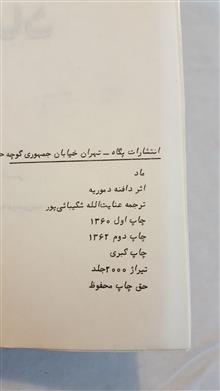 انتشارات پگاه – تهران خیابان جمهوری کوچه
ماد
اثر دافنه دموریه
ترجمه عنایت‌الله شکیبائی‌پور
چاپ اول ۱۳۶۰
چاپ دوم ۱۳۶۲
چاپ گیری
تیراژ ۲۰۰۰جلد
حق چاپ محفوظ